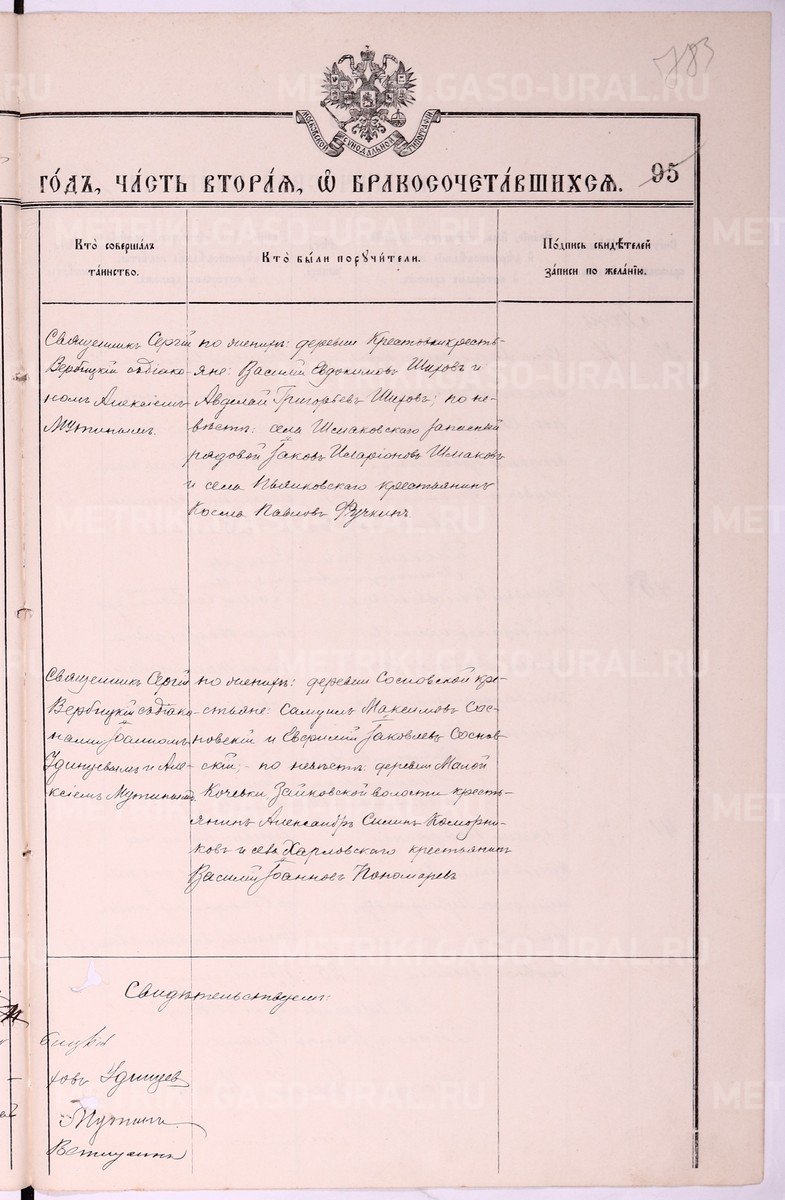 783
МОСКОВСКОЙ СѴНОДАЛЬНОЙ ТИПОГРАФІИ
ГО́ДЪ, ЧА́СТЬ ВТОРА́Я, Ѽ БРАКОСОЧЕТА́ВШИХСЯ. 95
Кто̀ соверша́лъ
та́инство.
Кто̀ бы́ли поручи́тели.
По́дпись свидѣ́телей
за́писи по жела́нію.
Священникъ Сергій
Вербицкій съ діако-
номъ Алексіемъ
Мутинымъ.
по жениху: деревни Крестовки кресть-
яне: Василій Евдокимовъ Шировъ и
Авделай Григорьевъ Шировъ; по не-
вѣстѣ: села Шмаковскаго запасный
рядовой Іаковъ Иларіоновъ Шмаковъ
и села Пьянковскаго крестьянинъ
Косма Павловъ Фучкинъ.
Священникъ Сергій
Вербицкій съ діако-
нами Іоанномъ
Удинцевымъ и Але-
ксіемъ Мутинымъ.
по жениху: деревни Сосновской кре-
стьяне: Самуилъ Максимовъ Сос-
новскій и Евфимій Іаковлевъ Соснов-
скій; - по невѣстѣ: деревни Малой
Кочевки Зайковской волости кресть-
янинъ Александръ Силинъ Коморни-
ковъ и села Харловскаго крестьянинъ
Василій Іоанновъ Пономаревъ
Свидѣтельствуемъ:
бицкій
Удинцев
Мутинъ